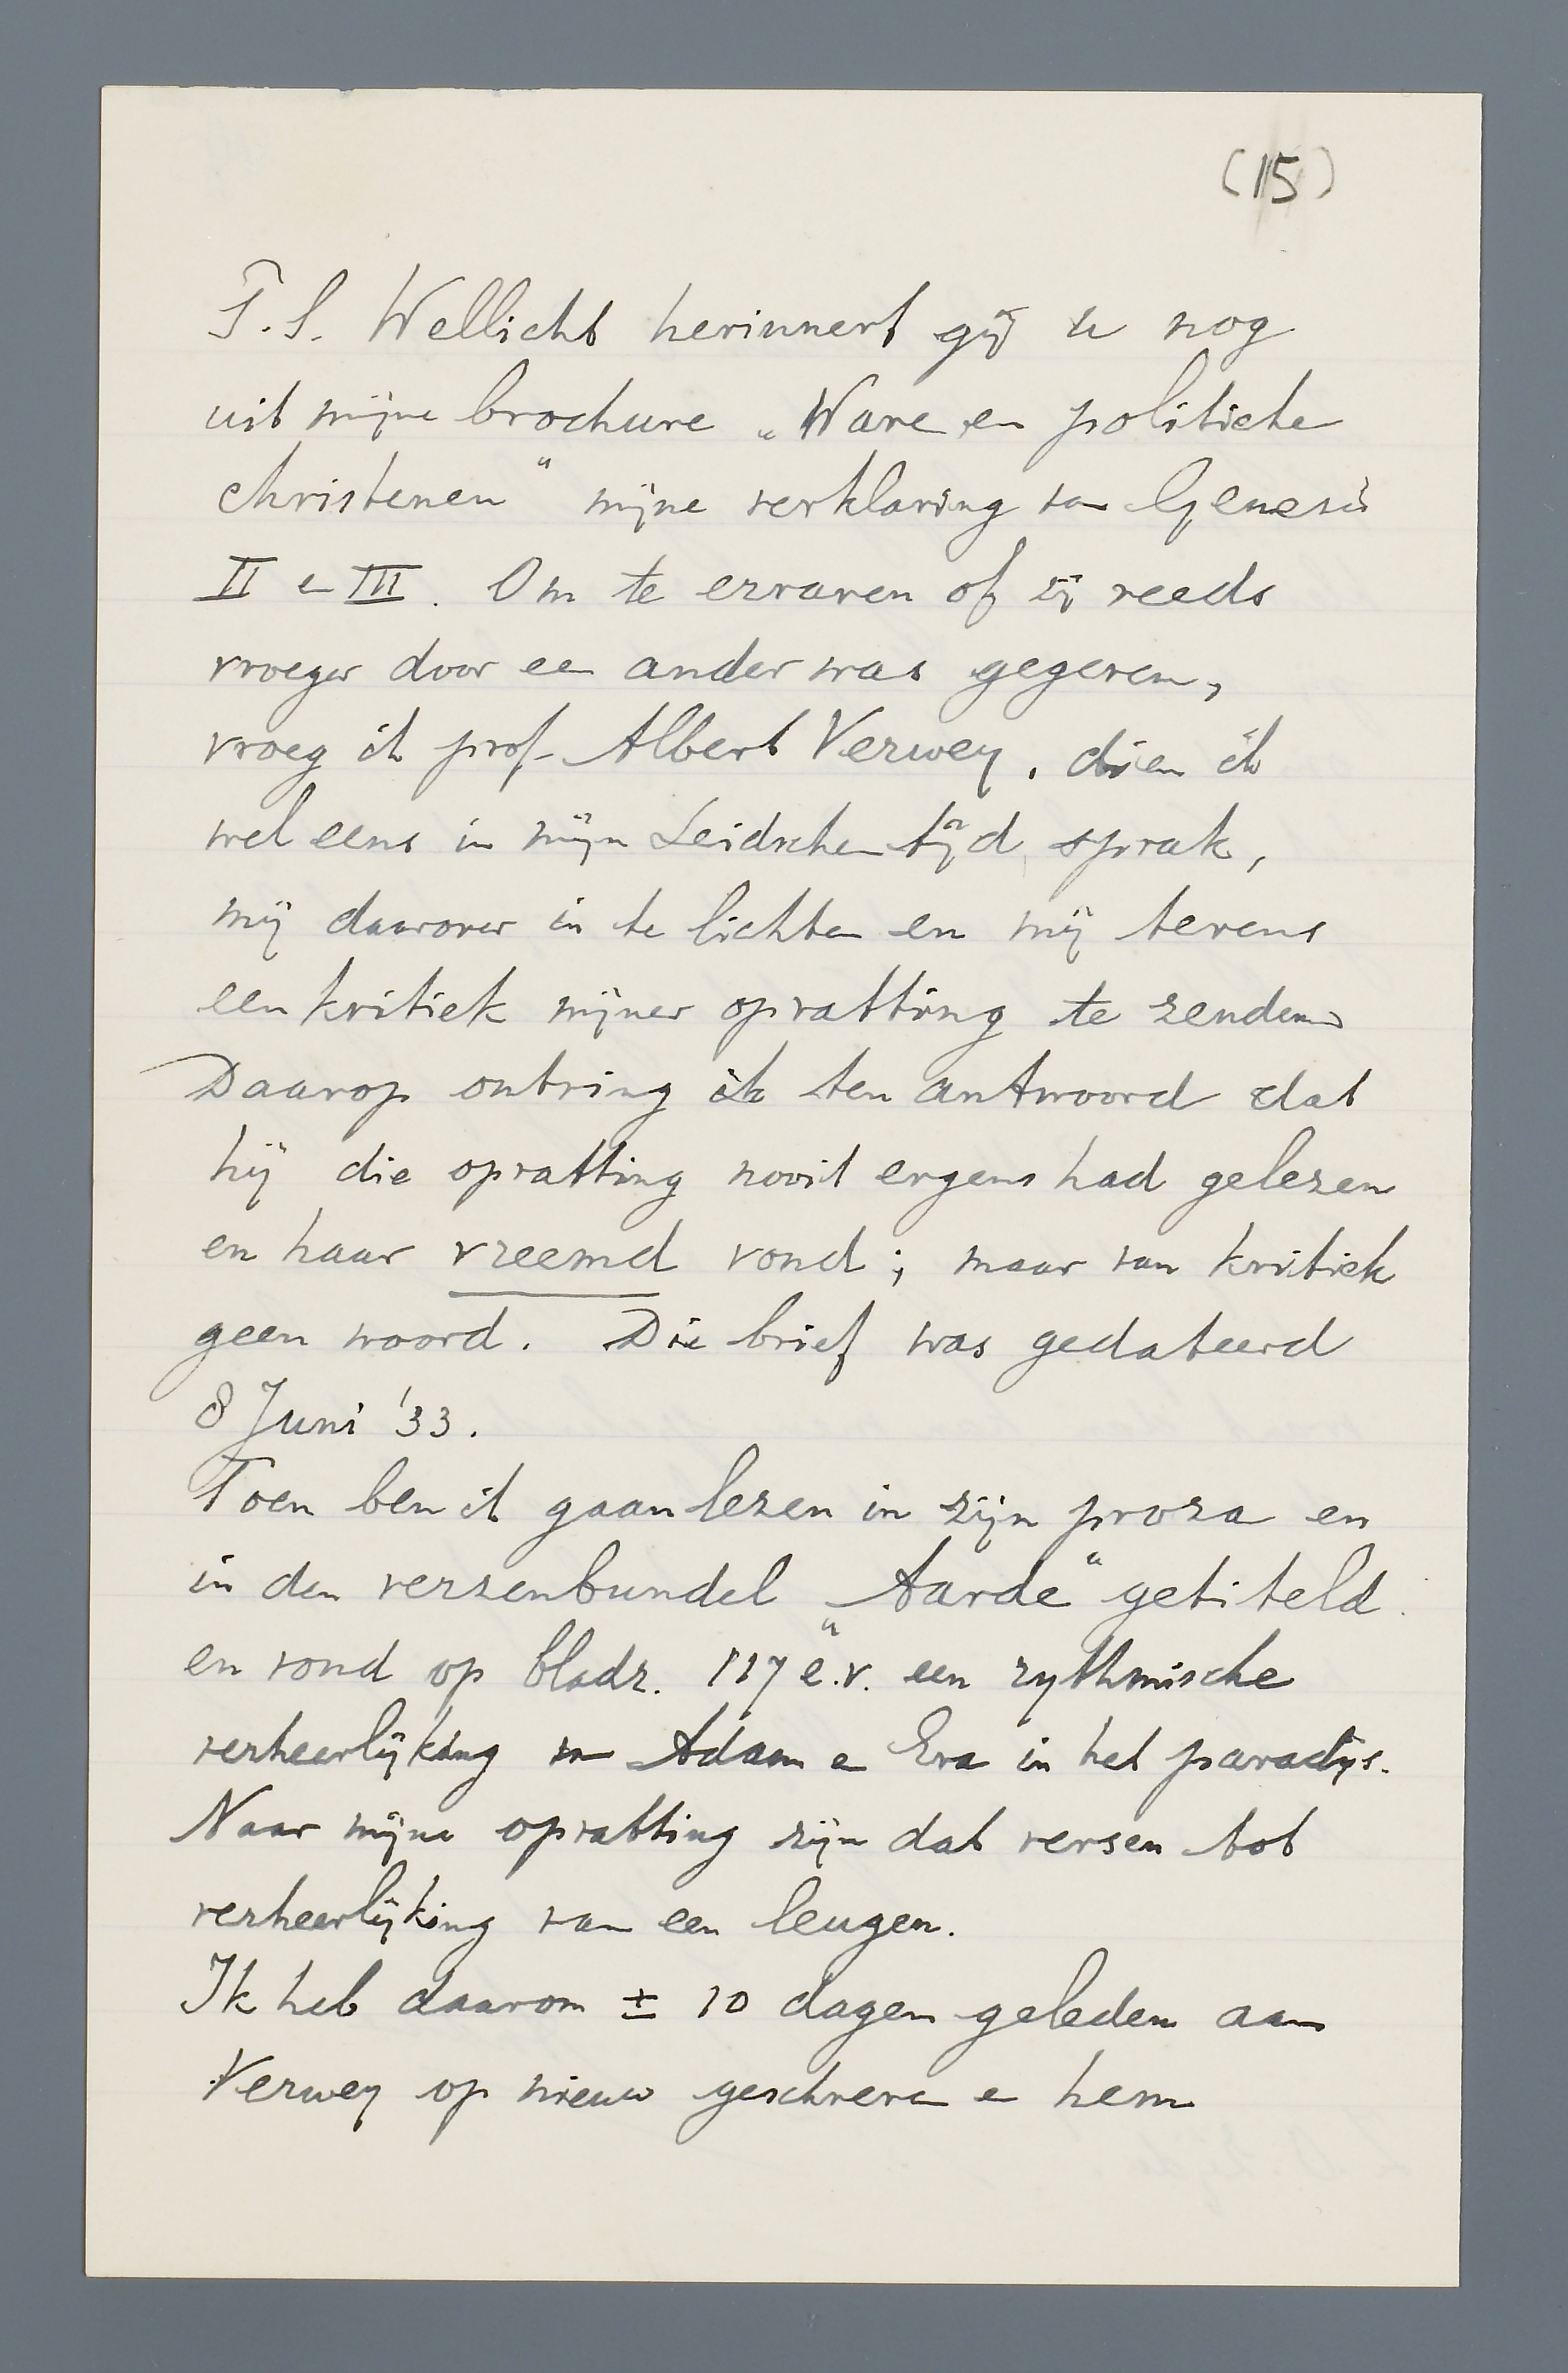 (15)
P.S. Wellicht herinnert gij u nog
uit mijne brochure „Ware en politieke
christenen" mijne verklaring van Genesis
II en III. Om te ervaren of zij reeds
vroeger door een ander was gegeven,
vroeg ik prof. Albert Verwey, dien ik
wel eens in mijn Leidschen tijd sprak,
mij daarover in te lichten en mij tevens
een kritiek mijner opvatting te zenden
Daarop ontving ik ten antwoord dat
hij die opvatting nooit ergens had gelezen
en haar vreemd vond; maar van kritiek
geen woord. Die brief was gedateerd
8 Juni '33.
Toen ben ik gaan lezen in zijn proza en
in den verzenbundel „Aarde" getiteld
en vond op bladz. 117 e.v. een rythmische
verheerlijking van Adam en Eva in het paradijs.
Naar mijne opvatting zijn dat verzen tot
verheerlijking van een leugen.
Ik heb daarom ± 10 dagen geleden aan
Verwey op nieuw geschreven en hem